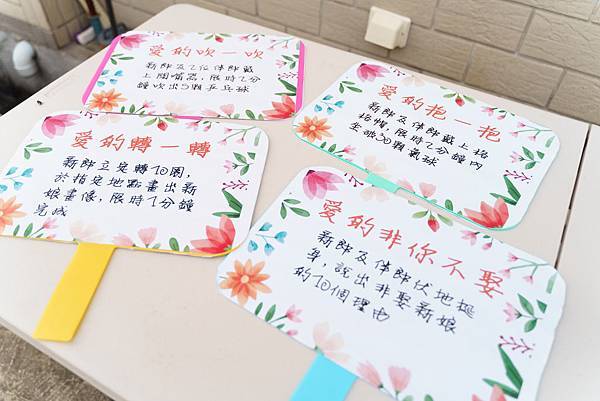 愛的吹一吹
新郎及2位伴郎戴
上開嘴器,限時2分
鐘吹出3顆乒乓球
愛的抱一抱
新郎及伴郎戴上搭
檔帽,限時2分鐘內
全破30顆氣球
愛的轉一轉
新郎立定轉10圈,
於指定地點畫出新
娘畫像,限時1分鐘
完成
愛的非你不娶
新郎及伴郎伏地挺
身,說出非娶新娘
的10個理由